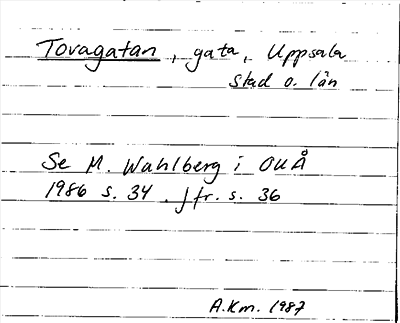 Tovagatan, gata, Uppsala
stad o. län
Se M. Wahlberg i OUÅ
1986 s. 34. Jfr. s. 36
A.Km. 1987